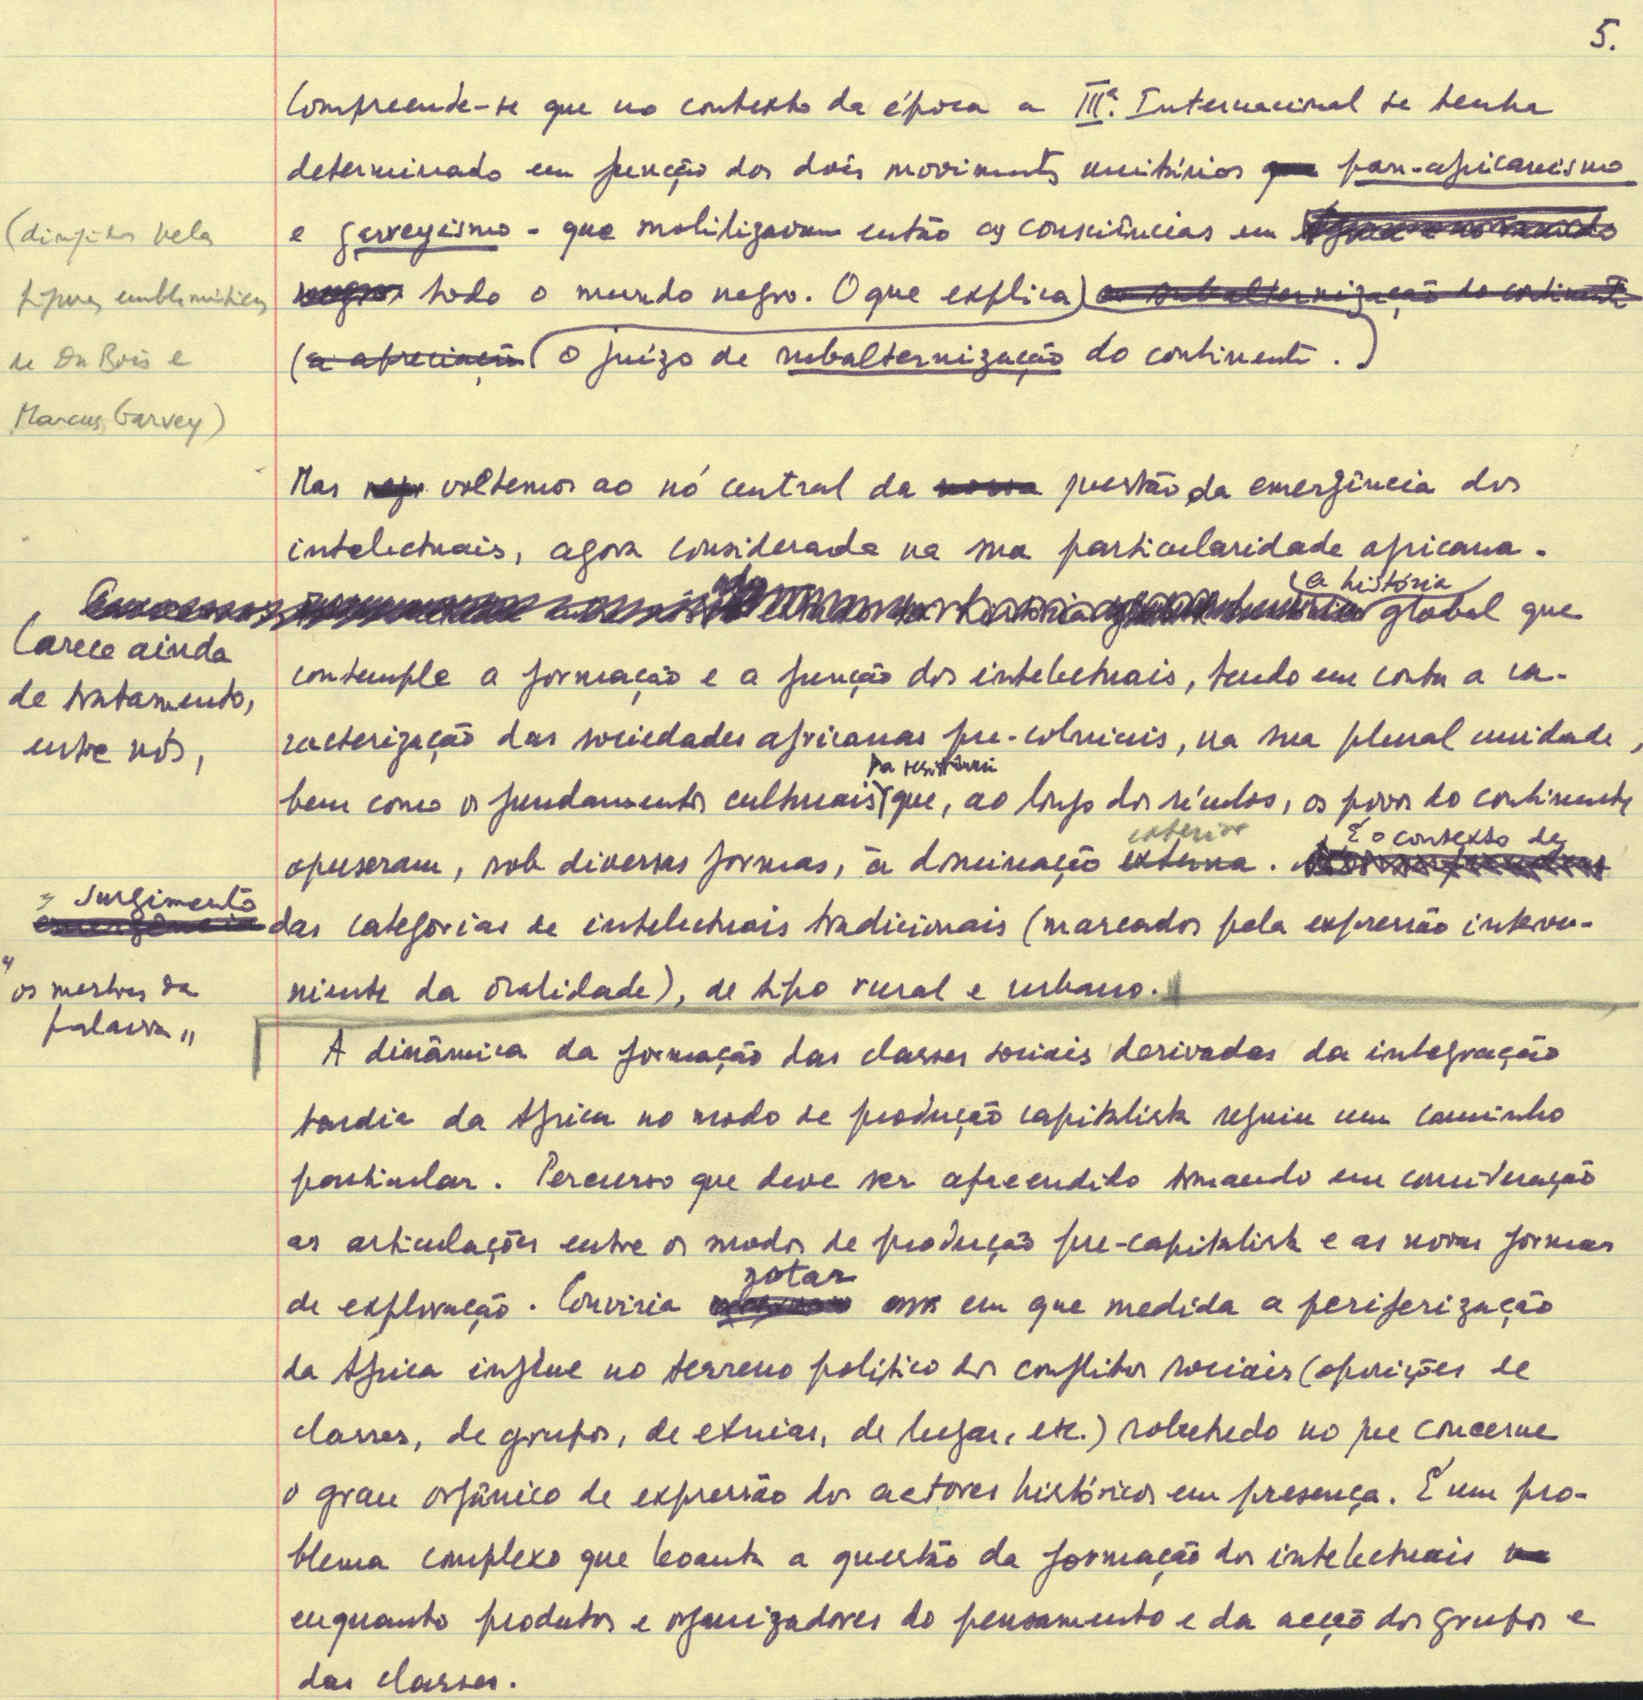 5.
Compreende-se que no contexto da época a IIIª. Internacional se tenha
determinado em função dos dois movimentos unitários que pan-africanismo
e garveyismo - que mobilizavam então as consciências em
(dirigidos pela
negro todo o mundo negro. O que explica) a subalternização do continente
figuras emblemáticas
(a apreciação (o juízo de subalternização do continente.)
de Du Bois e
Marcus Garvey)
Mas voltemos ao nó central da nossa questão, da emergência dos
intelectuais, agora considerada na sua particularidade africana.
(a história
global que
Carece ainda
contemple a formação e a função dos intelectuais, tendo em conta a ca-
de tratamento,
racterização das sociedades africanas pre-coloniais, na sua plural unidade,
entre nós,
da resistência
bem como os fundamentos culturais que, ao longo dos séculos, os povos do continente
exterior
É o contexto de
opuseram, sob diversas formas, à dominação externa.
surgimento
emergência das categorias de intelectuais tradicionais (marcados pela expressão interve-
"os mestres da
niente da oralidade), de tipo rural e urbano.
palavra"
A dinâmica da formação das classes sociais derivadas da integração
tardia da África no modo de produção capitalista seguiu um caminho
particular. Percurso que deve ser apreendido tomando em consideração
as articulações entre os modos de produção pre-capitalista e as novas formas
notar
de exploração. Conviria em que medida a periferização
da África influe no terreno político dos conflitos sociais (oposições de
classes, de grupos, de etnias, de lugar, etc.) sobretudo no que concerne
o grau orgânico de expressão dos actores históricos em presença. É um pro-
blema complexo que levanta a questão da formação dos intelectuais na
enquanto produtos e organizadores do pensamento e da acção dos grupos e
das classes.